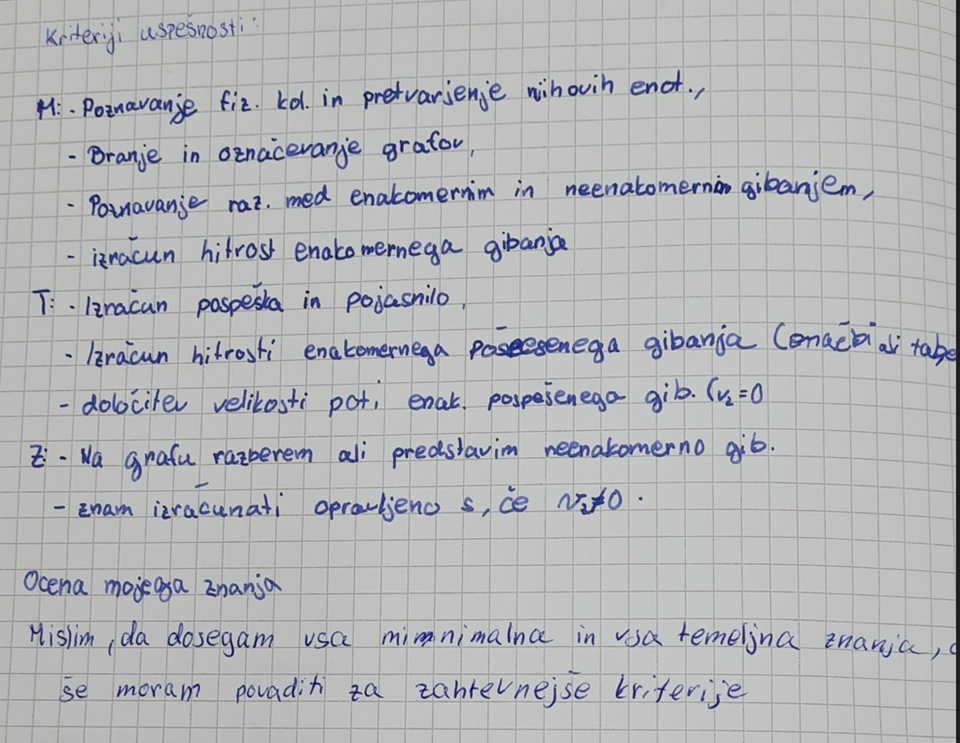 Kriteriji uspešnosti:
M: - Poznavanje fiz. kol. in pretvarjenje nihovih enot.,
- Branje in označevanje grafov,
- Poznavanje raz. med enakomernim in neenakomernim gibanjem,
- izračun hitrost enakomernega gibanja
T: - Izračun pospeška in pojasnilo,
- Izračun hitrosti enakomernega gibanja (enačbi ali tabe
- določitev velikosti poti enak. pospešenega gib. (v₂=0
Z: - Na grafu razberem ali predstavim neenakomerno gib.
- znam izračunati opravljeno s, če v₂≠0.
Ocena mojega znanja
Mislim, da dosegam vsa mimnimalna in vsa temeljna znanja,
še moram povaditi za zahtevnejše kriterije